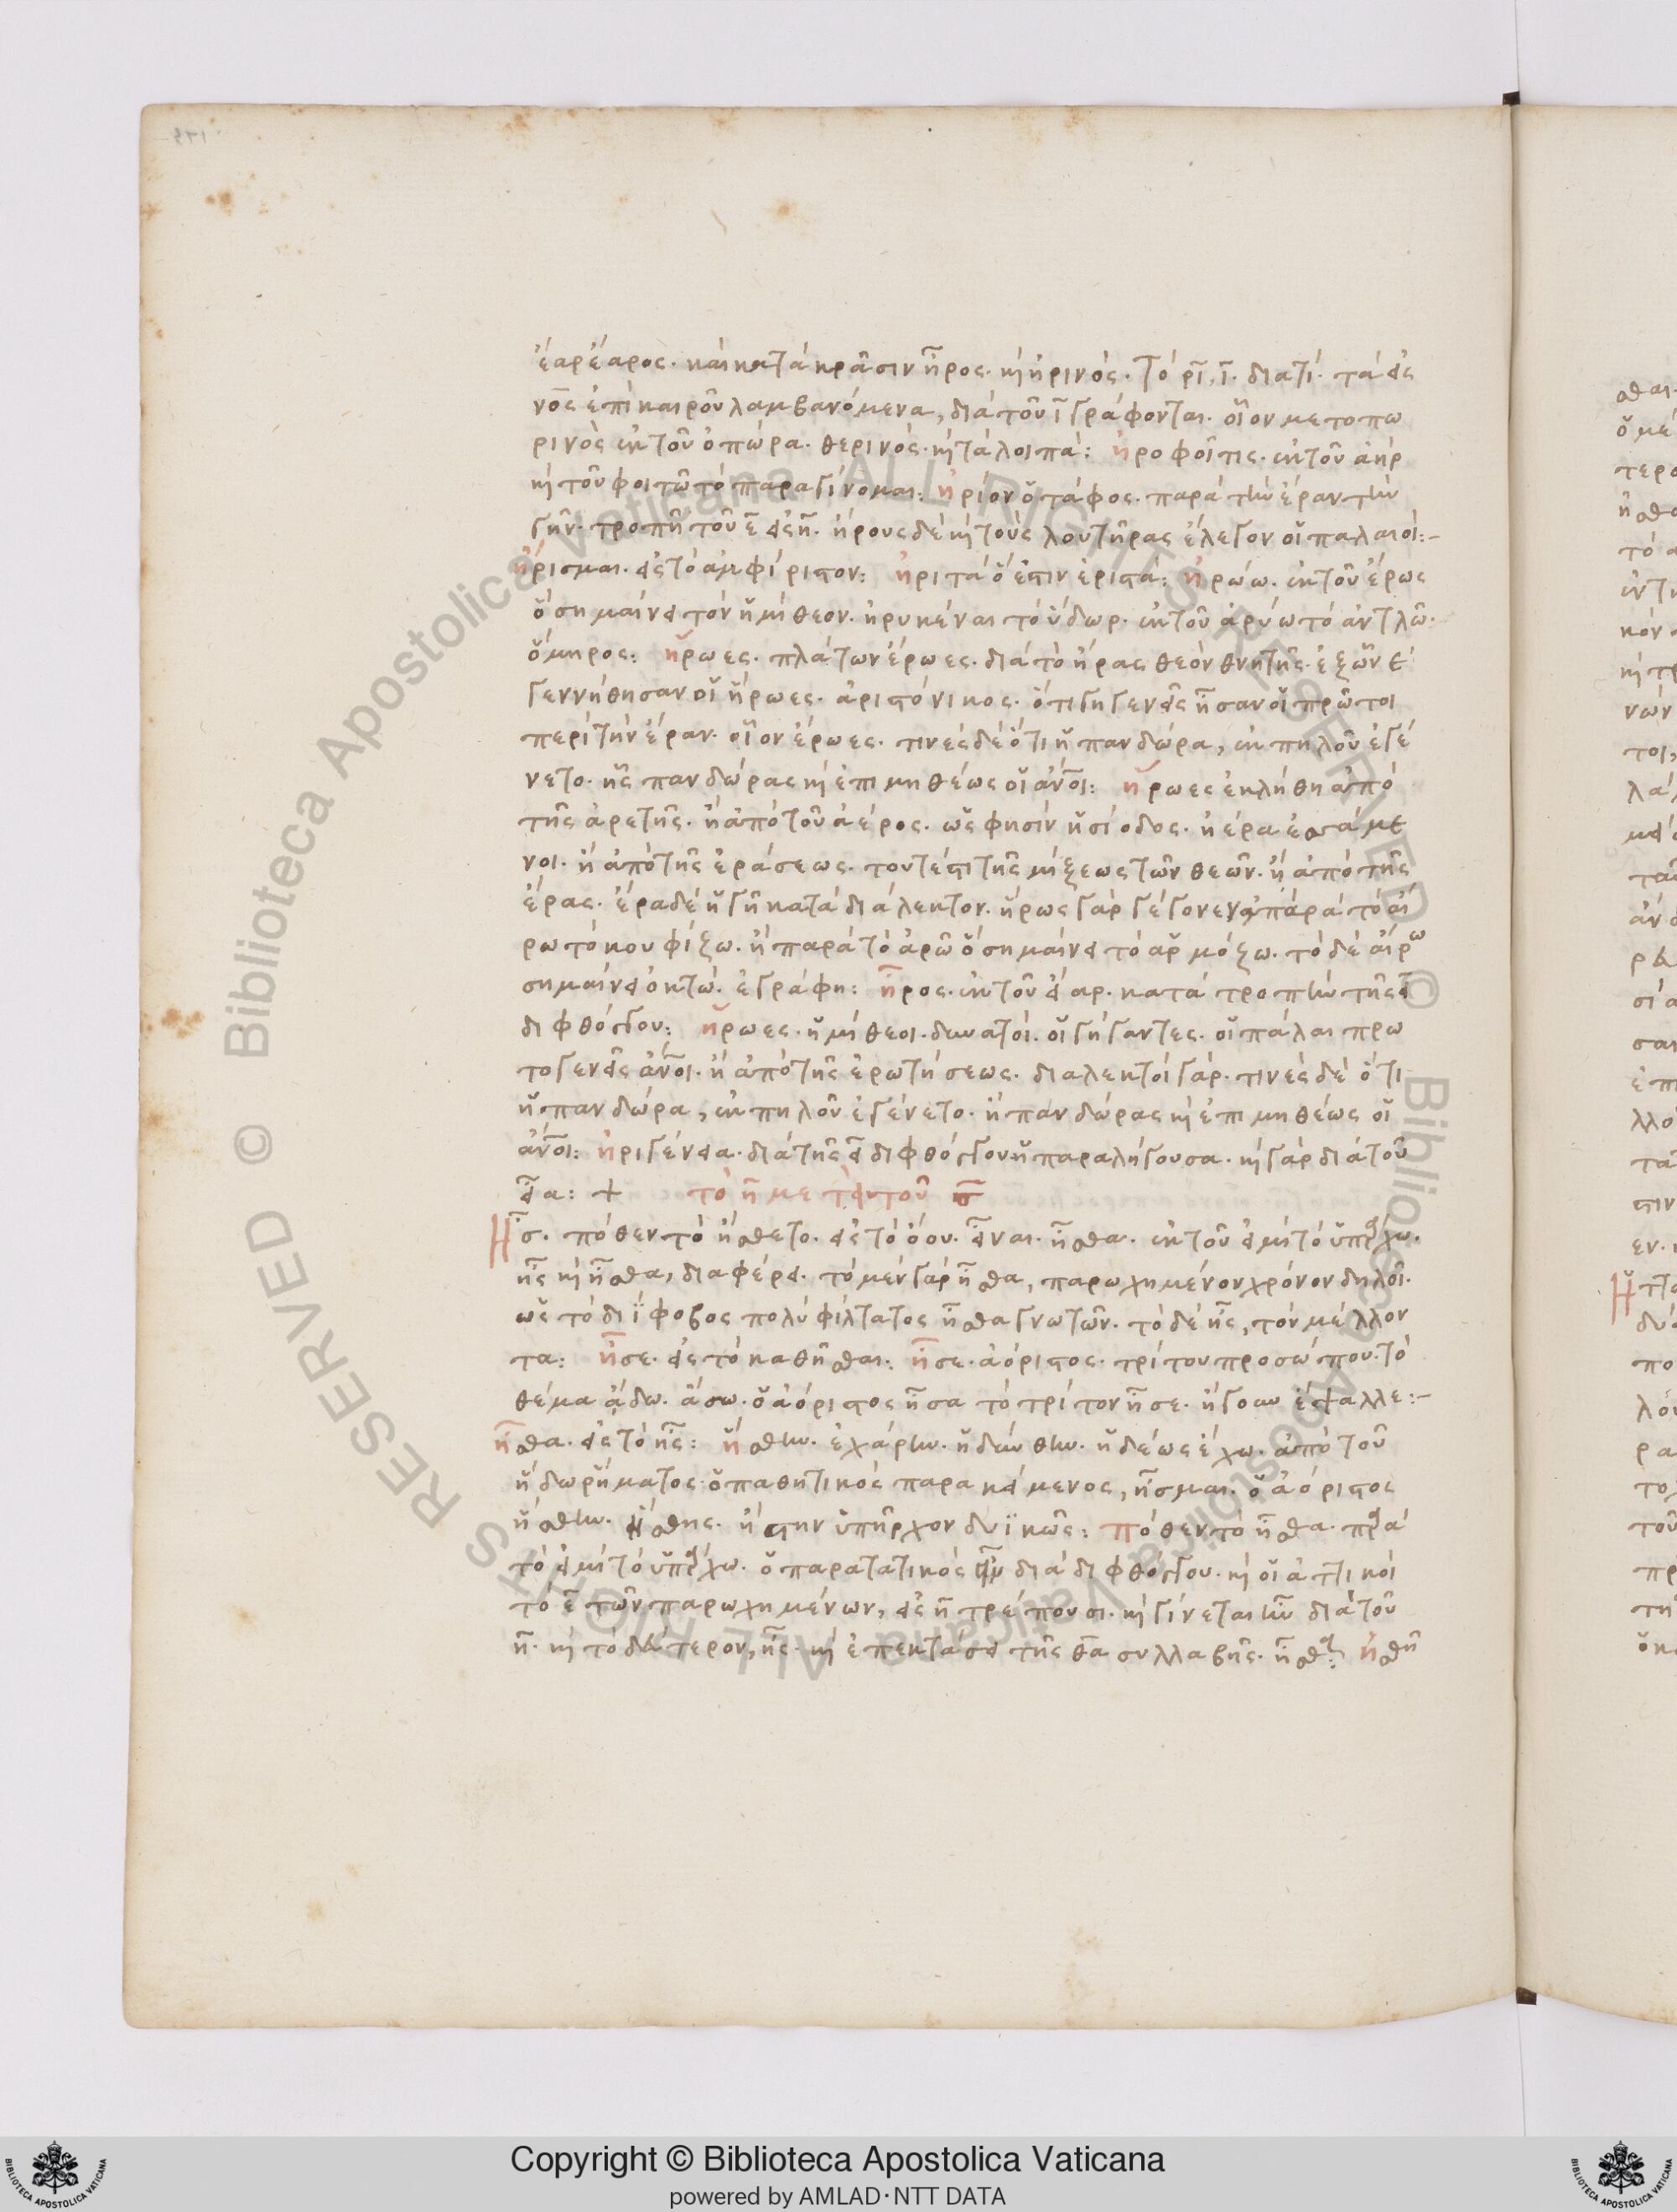 ἔαρ ἔαρος· καὶ κατὰ κρᾶσιν ἦρος· καὶ ἠρινός· τὸ ρῖ, ῖ· διατί· τὰ εἰς
νος ἐπὶ καιροῦ λαμβανόμενα, διὰ τοῦ ῖ γράφονται· οἷον μετοπω
ρινὸς ἐκ τοῦ ὀπώρα· θερινός· καὶ τὰ λοιπά: ἠροφοῖτις· ἐκ τοῦ ἀὴρ
καὶ τοῦ φοιτῶ τὸ παραγίνομαι: ἠρίον ὁ τάφος· παρὰ τὴν ἔραν τὴν
γῆν· τροπῆ τοῦ ε εἰς η· ἤρους δὲ καὶ τοὺς λουτῆρας ἔλεγον οἱ παλαιοί:-
ἤρισμαι· εἰς τὸ ἀμφίριστον: ἤριτα ὅ ἐστιν ἔριστα: ἡρώω· ἐκ τοῦ ἔρως
ὃ σημαίνει τὸν ἡμίθεον· ἠρυκέναι τὸ ὕδωρ· ἐκ τοῦ ἀρύω τὸ ἀντλῶ·
ὅμηρος: ἥρωες· πλάτων ἔρωες· διὰ τὸ ἤρας θεὸν θνητῆς· ἐξ ὧν ἐ
γεννήθησαν οἱ ἥρωες· ἀριστόνικος· ὅτι γηγενεῖς ἦσαν οἱ πρῶτοι
περὶ τὴν ἔραν· οἷον ἔρωες· τινὲς δὲ ὅτι ἡ πανδώρα, ἐκ πηλοῦ ἐγέ
νετο· ἧς πανδώρας καὶ ἐπιμηθέως οἱ ἄνοι: ἥρωες ἐκλήθη ἀπὸ
τῆς ἀρετῆς· ἢ ἀπὸ τοῦ ἀέρος· ὥς φησιν ἡσίοδος· ἠέρα ἐσσάμε
νοι· ἢ ἀπὸ τῆς ἐράσεως· τουτέστι τῆς μίξεως τῶν θεῶν· ἢ ἀπὸ τῆς
ἔρας· ἔρα δὲ ἡ γῆ κατὰ διάλεκτον· ἥρως γὰρ γέγονεν παρὰ τὸ αἴ
ρω τὸ κουφίζω· ἢ παρὰ τὸ ἀρῶ ὃ σημαίνει τὸ ἁρμόζω· τὸ δὲ αἴρω
σημαίνει ὀκτώ· ἐγράφη: ἦρος· ἐκ τοῦ εἶαρ· κατὰ τροπὴν τῆς ει
διφθόγγου: ἥρωες· ἡμίθεοι· δυνατοί· οἱ γήγαντες· οἱ πάλαι πρω
τογενεῖς ἄνοι· ἢ ἀπὸ τῆς ἐρωτήσεως· διαλεκτοὶ γάρ· τινὲς δὲ ὅτι
ἡ πανδώρα, ἐκ πηλοῦ ἐγένετο· ἡ πανδώρας καὶ ἐπιμηθέως οἱ
ἄνοι: ἠριγένεια· διὰ τῆς ει διφθόγγου ἡ παραλήγουσα· καὶ γὰρ διὰ τοῦ
εια: + τὸ η μετὰ τοῦ σ
Ησ· πόθεν τὸ ἤσθετο· εἰς τὸ ὅου· εἶναι· ἦσθα· ἐκ τοῦ εἰμὶ τὸ ὑπάρχω·
ἦς καὶ ἦσθα, διαφέρει· τὸ μὲν γὰρ ἦσθα, παρωχημένον χρόνον δηλοῖ·
ὡς τὸ δηΐφοβος πολὺ φίλτατος ἦσθα γνωτῶν· τὸ δὲ ἦς, τὸν μέλλον
τα: ἧσε· εἰς τὸ καθῆσθαι: ἧσε· ἀόριστος· τρίτου προσώπου· τὸ
θέμα ἄδω· ἄσω· ὁ ἀόριστος ἧσα τὸ τρίτον ἧσε· ἤγουν ἔψαλλε:-
ἦσθα· εἰς τὸ ἦς: ἥσθην· ἐχάρην· ἡδύνθην· ἡδέως ἔχω· ἀπὸ τοῦ
ἥδω ῥήματος· ὁ παθητικὸς παρακείμενος, ἧσμαι· ὁ ἀόριστος
ἥσθην· ἥσθης· ἤστην ὑπῆρχον δυϊκῶς: πόθεν τὸ ἦσθα· παρὰ
τὸ εἰμὶ τὸ ὑπάρχω· ὁ παρατατικὸς διὰ διφθόγγου· καὶ οἱ ἀττικοὶ
τὸ ε τῶν παρωχημένων, εἰς η τρέπουσι· καὶ γίνεται ἦν διὰ τοῦ
η· καὶ τὸ δεύτερον, ἦς· καὶ ἐπεκτάσει τῆς θα συλλαβῆς· ἦσθα: ἤσθη